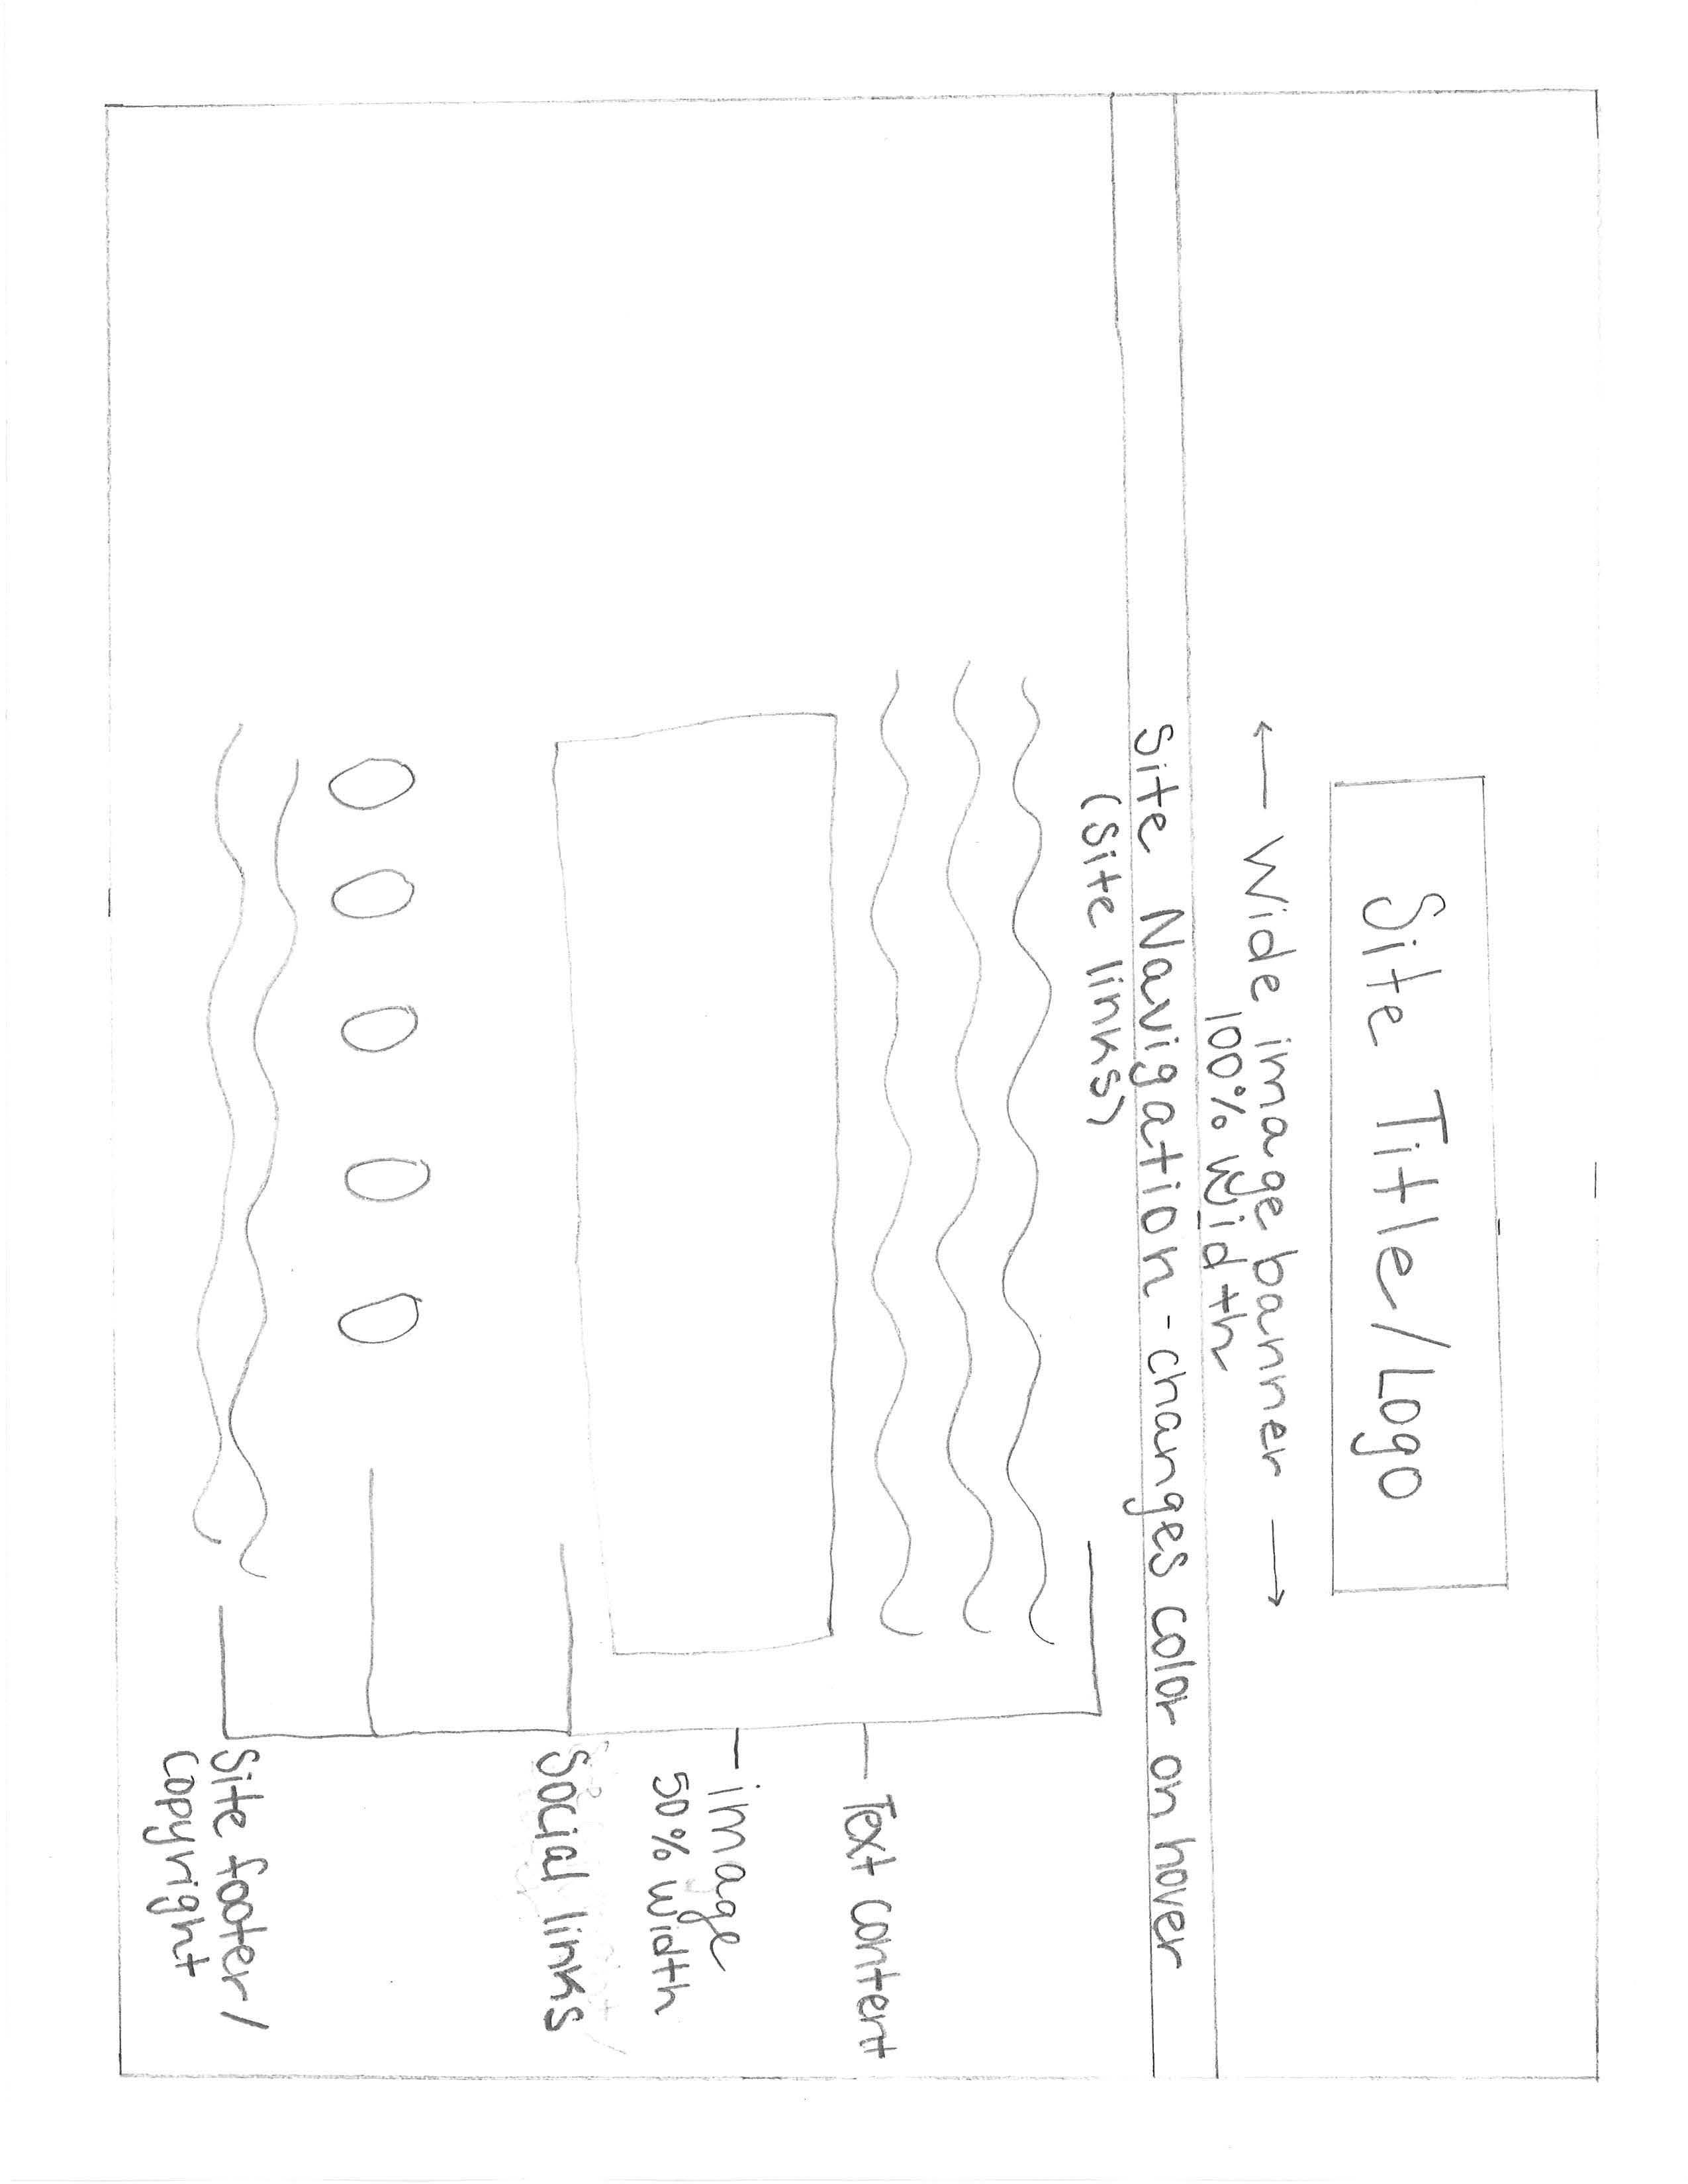 Site Title/Logo
Wide image banner
100% Width
Site Navigation - changes color on hover
(Site links)
Text content
image
50% width
Social links
Site footer/
Copyright